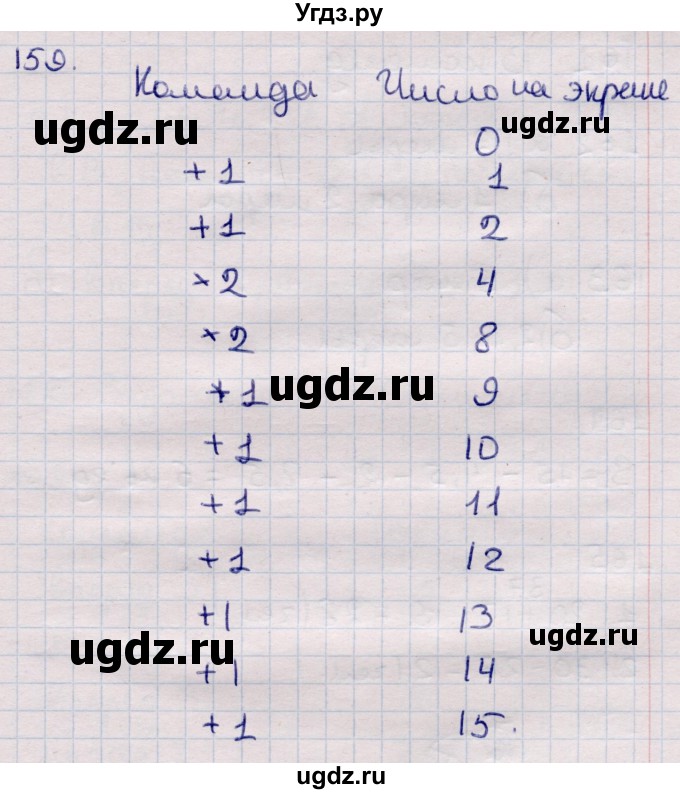 Угдз.ру
159.
Команда Число на экране
ugdz.ru
ugdz.ru
0
+1 1
+1 2
×2 4
×2 8
ugdz.ru
+1 9
+1 10
+1 11
+1 12
+1 13
ugdz.ru
ugdz.ru
+1 14
+1 15.
ugdz.ru